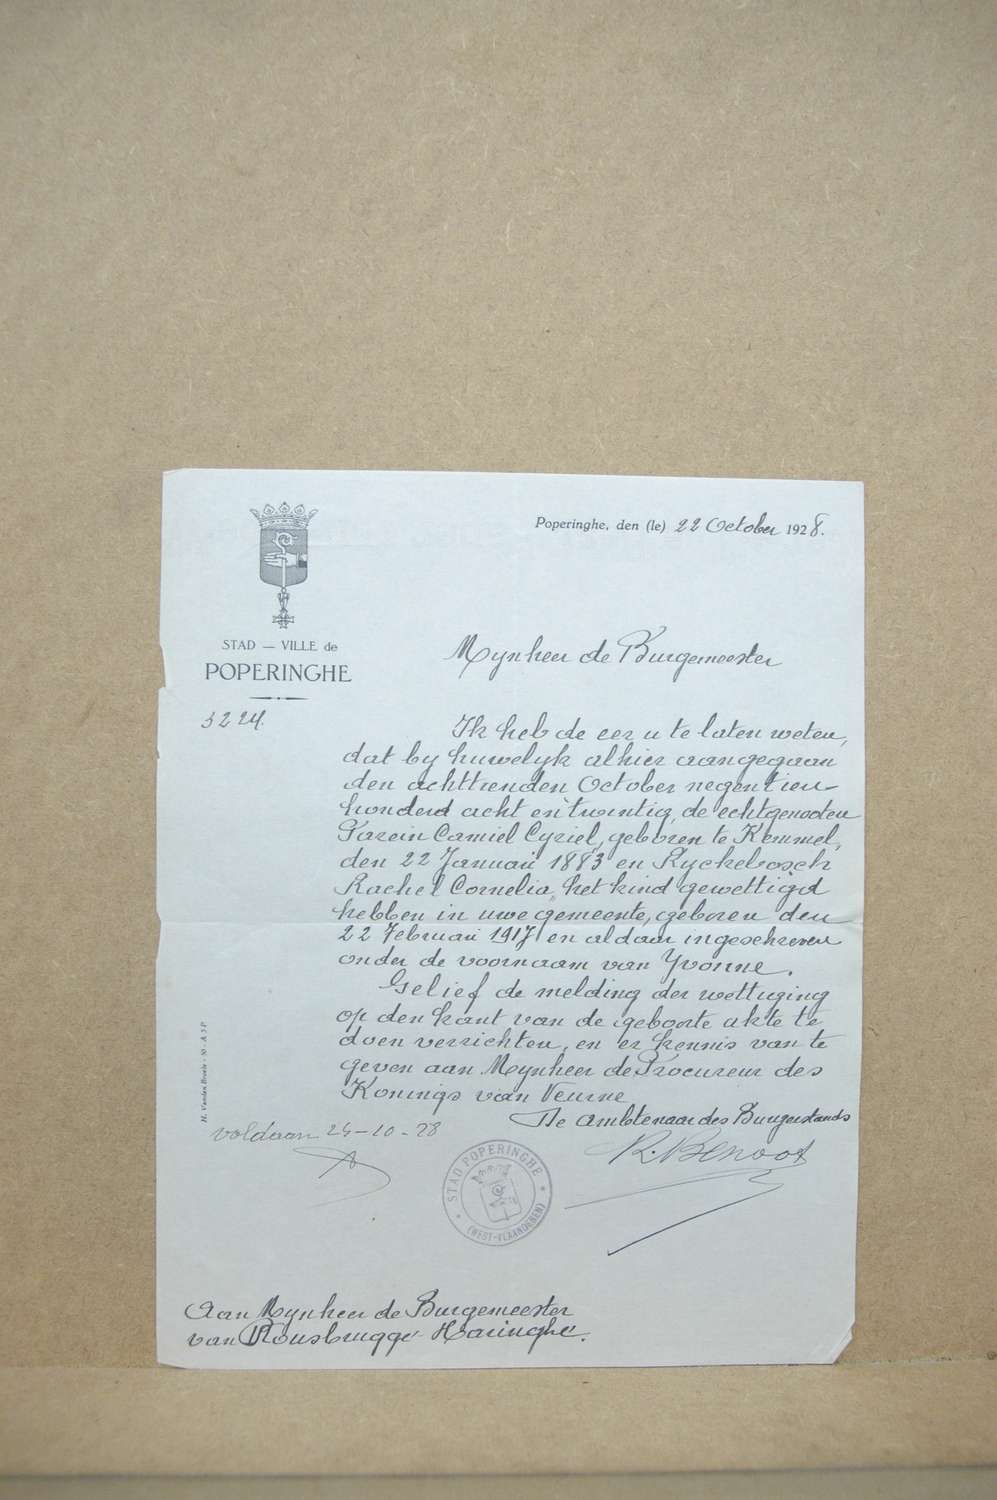 Poperinghe, den (le) 22 October 1928.
STAD — VILLE de
POPERINGHE
5224.
Mynheer de Burgemeester
Ik heb de eer u te laten weten,
dat by huwelyk alhier aangegaan
den achttienden October negentien-
honderd acht en twintig, de echtgenooten
Parein Camiel Cyriel, geboren te Kemmel,
den 22 Januari 1883 en Ryckebosch
Rachel Cornelia, het kind gewettigd
hebben in uwe gemeente, geboren den
22 Februari 1917 en aldaar ingeschreven
onder de voornaam van Yvonne.
Gelief de melding der wettiging
op den kant van de geboorte akte te
doen verrichten, en er kennis van te
geven aan Mynheer de Procureur des
Konings van Veurne
De Ambtenaar des Burgerstands
R. Benoot
H. Vanden Broele - 50 - A 5 P
voldaan 24-10-28
STAD POPERINGHE
(WEST-VLAANDEREN)
Aan Mynheer de Burgemeester
van Rousbrugge Haringhe.